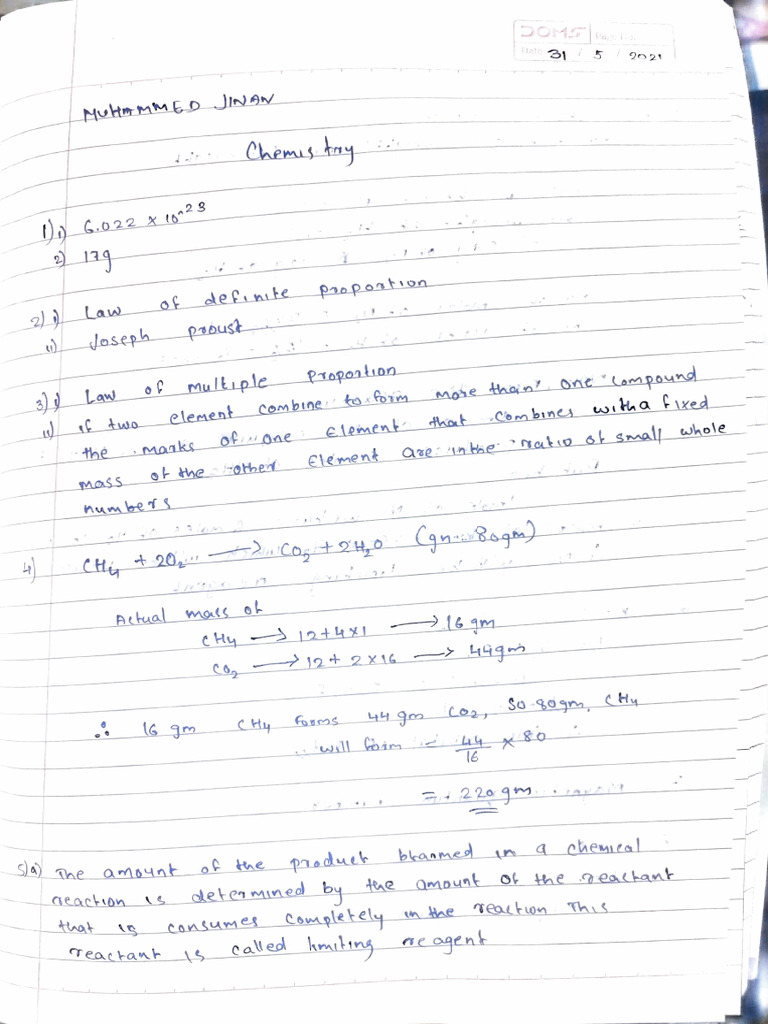 DOMS
Date 31 / 5 / 2021
MUHAMMED JINAN
Chemistry
1) 1) 6.022 x 10^23
2) 17g
2) i) Law of definite proportion
ii) Joseph proust
3) i) Law of multiple proportion
ii) if two element combine to form more than one compound
the marks of one element that combines with a fixed
mass of the other element are in the ratio of small whole
numbers
4) CH₄ + 2O₂ → CO₂ + 2H₂O (gn. 80gm)
Actual mass of
CH₄ → 12+4x1 → 16 gm
CO₂ → 12 + 2 x 16 → 44gm
∴ 16 gm CH₄ forms 44 gm CO₂, So 80gm. CH₄
will form = 44/16 x 80
= 220 gm
5) a) The amount of the product in a chemical
reaction is determined by the amount of the reactant
that is consumes completely in the reaction This
reactant is called limiting reagent